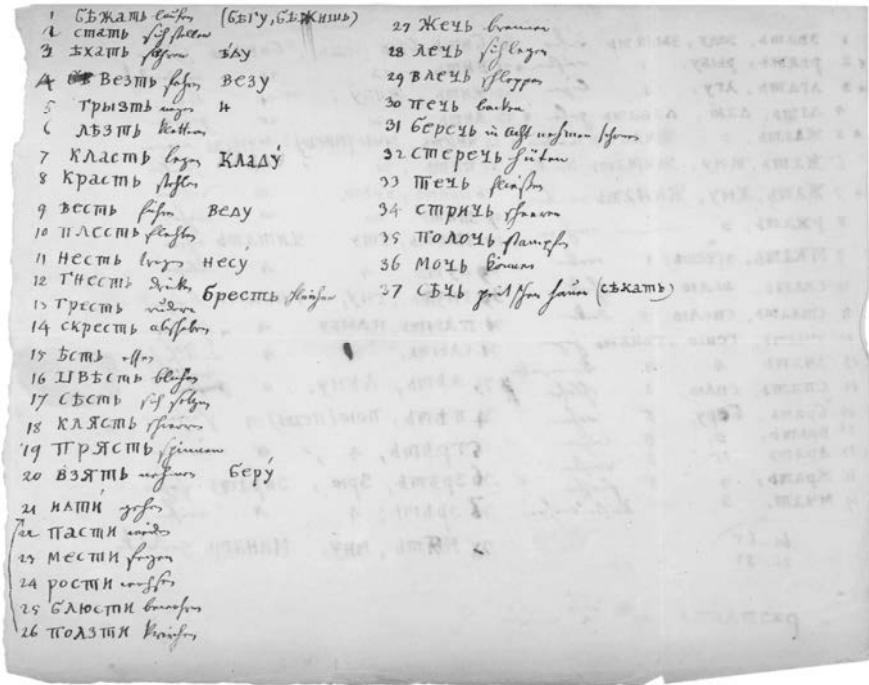 1 бѣжать laufen (бѣгу, бѣжишь)
2 стать sich stellen
3 ѣхать fahren ѣду
4 везть fahren везу
5 грызть nagen
6 лѣзть klettern
7 класть legen кладу́
8 красть stehlen
9 весть führen веду
10 плесть flechten
11 несть tragen несу́
12 гнесть drücken
13 гресть rudern бресть
14 скресть abschaben
15 ѣсть essen
16 цвѣсть blühen
17 сѣсть sich setzen
18 клясть schwören
19 прясть spinnen
20 взять nehmen беру́
21 идти́ gehen
22 пасти weiden
23 мести fegen
24 рости wachsen
25 блюсти bewahren
26 ползти kriechen
27 жечь brennen
28 лечь sich legen
29 влечь schleppen
30 печь backen
31 беречь in Acht nehmen
32 стеречь hüten
33 течь fließen
34 стричь scheeren
35 толочь stampfen
36 мочь können
37 сѣчь hauen (сѣкать)